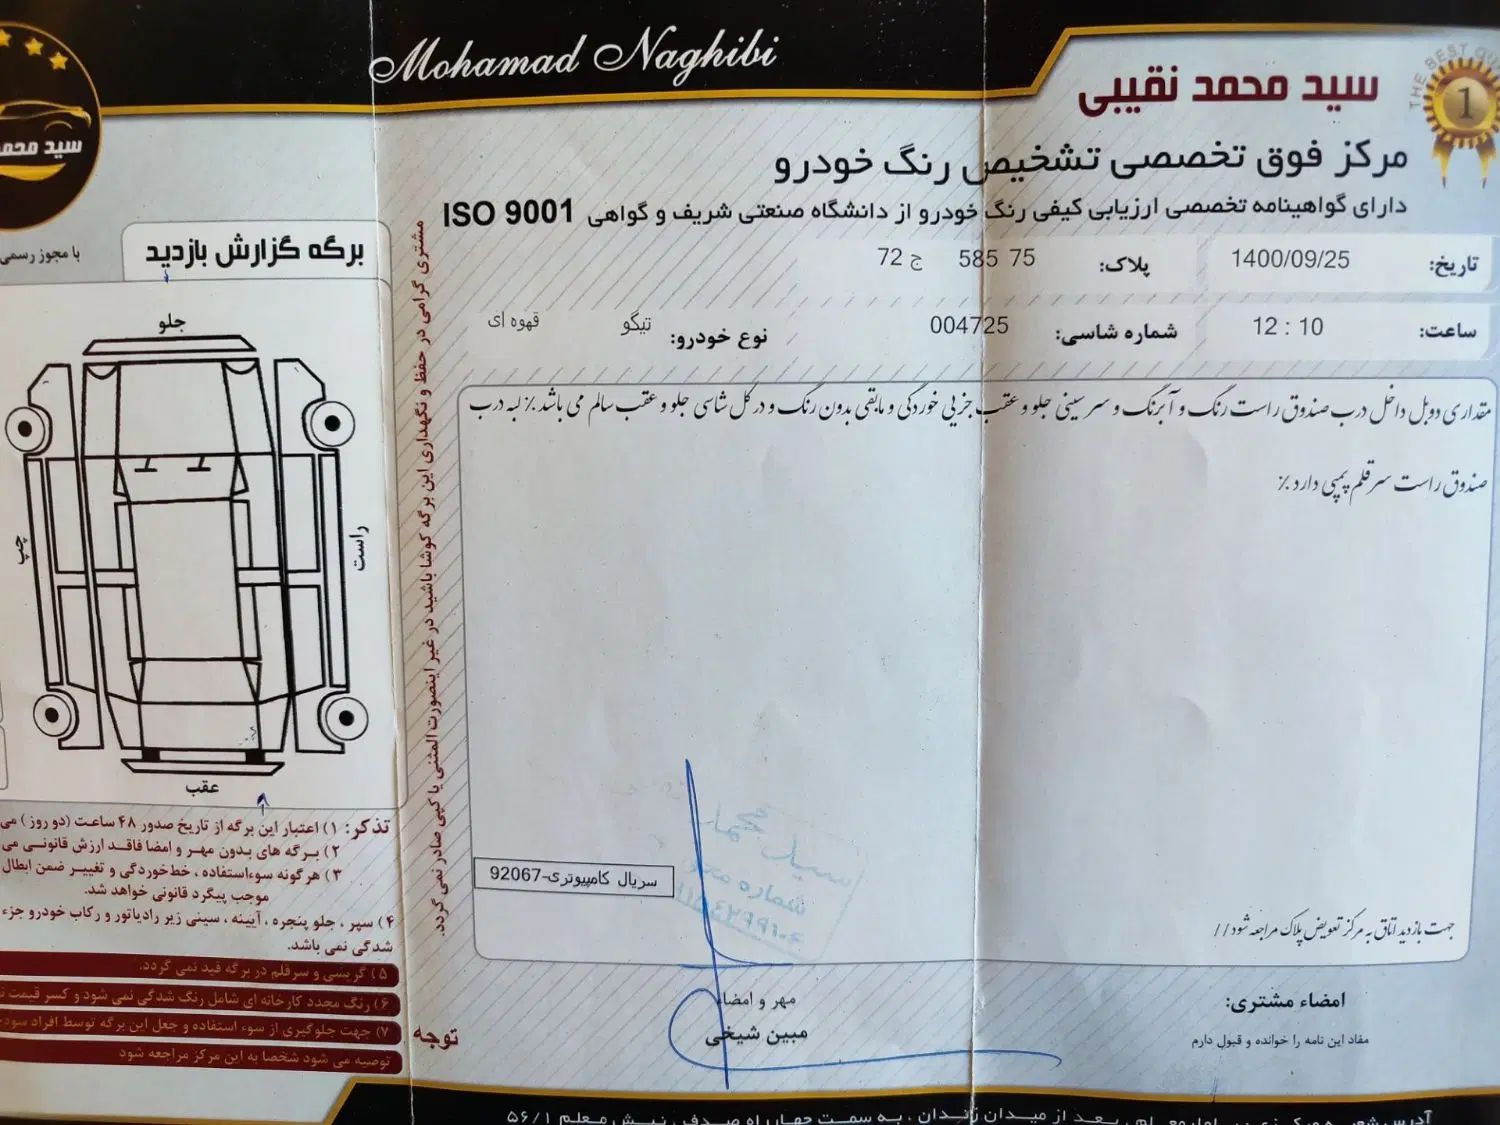 Mohamad Naghibi
سید محمد نقیبی
THE BEST
1
سید محمد
مرکز فوق تخصصی تشخیص رنگ خودرو
دارای گواهینامه تخصصی ارزیابی کیفی رنگ خودرو از دانشگاه صنعتی شریف و گواهی ISO 9001
تاریخ: 1400/09/25 پلاک: 75 585 ج 72
ساعت: 12 : 10 شماره شاسی: 004725 نوع خودرو: تیگو قهوه ای
مقداری دوبل داخل درب صندوق راست رنگ و آبرنگ و سر سینی جلو و عقب جزیی خوردگی و مابقی بدون رنگ و در کل شاسی جلو و عقب سالم می باشد ٪ لبه درب
صندوق راست سرقلم پمپی دارد ٪
جهت بازدید اتاق به مرکز تعویض پلاک مراجعه شود //
سریال کامپیوتری-92067
امضاء مشتری:
مفاد این نامه را خوانده و قبول دارم
مهر و امضاء
مبین شیخی
مشتری گرامی در حفظ و نگهداری این برگه کوشا باشید در غیر اینصورت المثنی یا کپی صادر نمی گردد.
برگه گزارش بازدید
با مجوز رسمی
جلو
چپ
راست
عقب
تذکر: ۱) اعتبار این برگه از تاریخ صدور ۴۸ ساعت (دو روز) می
۲) برگه های بدون مهر و امضا فاقد ارزش قانونی می
۳) هرگونه سوءاستفاده، خط‌خوردگی و تغییر ضمن ابطال
موجب پیگرد قانونی خواهد شد.
۴) سپر، جلو پنجره، آیینه، سینی زیر رادیاتور و رکاب خودرو جزء
شدگی نمی باشد.
۵) گریسی و سرقلم در برگه قید نمی گردد.
۶) رنگ مجدد کارخانه ای شامل رنگ شدگی نمی شود و کسر قیمت
۷) جهت جلوگیری از سوء استفاده و جعل این برگه توسط افراد
توصیه می شود شخصا به این مرکز مراجعه شود
توجه